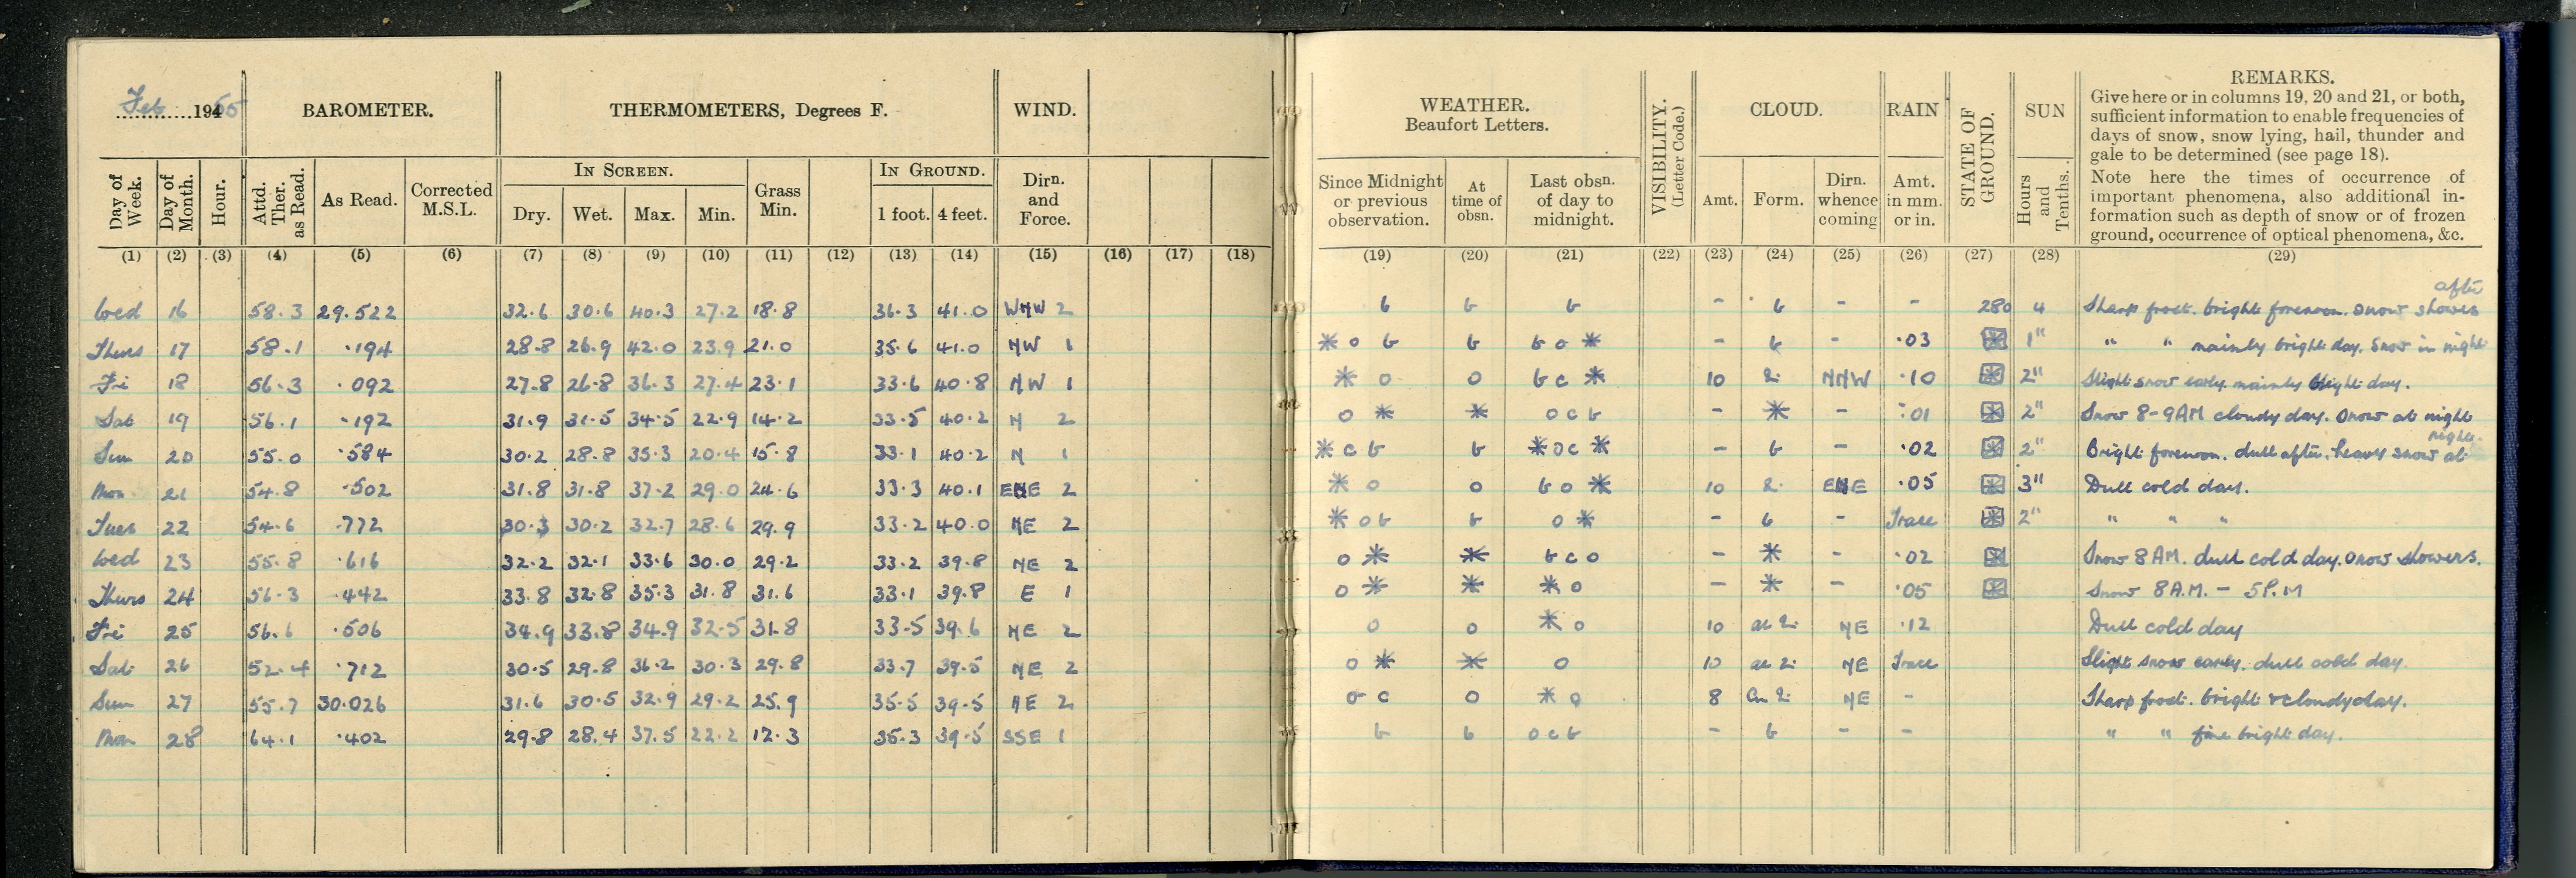 Feb 1955
BAROMETER. THERMOMETERS, Degrees F. WIND.
Day of Week. Day of Month. Hour. Attd. Ther. as Read. As Read. Corrected M.S.L. IN SCREEN. Dry. Wet. Max. Min. Grass Min. IN GROUND. 1 foot. 4 feet. Dirn. and Force.
(1) (2) (3) (4) (5) (6) (7) (8) (9) (10) (11) (12) (13) (14) (15) (16) (17) (18)
Wed 16 58.3 29.522 32.6 30.6 40.3 27.2 18.8 36.3 41.0 WNW 2
Thurs 17 58.1 .194 28.8 26.9 42.0 23.9 21.0 35.6 41.0 NW 1
Fri 18 56.3 .092 27.8 26.8 36.3 27.4 23.1 33.6 40.8 NW 1
Sat 19 56.1 .192 31.9 31.5 34.5 22.9 14.2 33.5 40.2 N 2
Sun 20 55.0 .584 30.2 28.8 35.3 20.4 15.8 33.1 40.2 N 1
Mon 21 54.8 .502 31.8 31.8 37.2 29.0 24.6 33.3 40.1 ENE 2
Tues 22 54.6 .772 30.3 30.2 32.7 28.6 29.9 33.2 40.0 NE 2
Wed 23 55.8 .616 32.2 32.1 33.6 30.0 29.2 33.2 39.8 NE 2
Thurs 24 56.3 .442 33.8 32.8 35.3 31.8 31.6 33.1 39.8 E 1
Fri 25 56.6 .506 34.9 33.8 34.9 32.5 31.8 33.5 39.6 NE 2
Sat 26 52.4 .712 30.5 29.8 36.2 30.3 29.8 33.7 39.5 NE 2
Sun 27 55.7 30.026 31.6 30.5 32.9 29.2 25.9 35.5 39.5 NE 2
Mon 28 64.1 .402 29.8 28.4 37.5 22.2 12.3 35.3 39.5 SSE 1
WEATHER. Beaufort Letters. VISIBILITY. (Letter Code.) CLOUD. RAIN STATE OF GROUND. SUN REMARKS.
Give here or in columns 19, 20 and 21, or both,
sufficient information to enable frequencies of
days of snow, snow lying, hail, thunder and
gale to be determined (see page 18).
Note here the times of occurrence of
important phenomena, also additional in-
formation such as depth of snow or of frozen
ground, occurrence of optical phenomena, &c.
Since Midnight or previous observation. At time of obsn. Last obsn. of day to midnight. Amt. Form. Dirn. whence coming Amt. in mm. or in. Hours and Tenths.
(19) (20) (21) (22) (23) (24) (25) (26) (27) (28) (29)
b b b - b - - 280 4 Sharp frost. bright forenoon. Snow showers after
* o b b b o * - b - .03 1" " " mainly bright day. Snow in night
* o o b c * 10 NNW .10 2" Slight snow early. mainly bright day.
o * * o c b - * - .01 2" Snow 8-9AM cloudy day. Snow at night
* c b b * o c * - b - .02 2" Bright forenoon. dull after. heavy snow at night.
* o o b o * 10 ENE .05 3" Dull cold day.
* o b b o * - b - Trace 2" " " "
o * * b c o - * - .02 Snow 8AM. dull cold day. Snow showers.
o * * * o - * - .05 Snow 8A.M. - 5P.M
o o * o 10 NE .12 Dull cold day
o * * o 10 NE Trace Slight snow early. dull cold day.
o c o * o 8 NE - Sharp frost. bright & cloudy day.
b b o c b - b - - " " fine bright day.